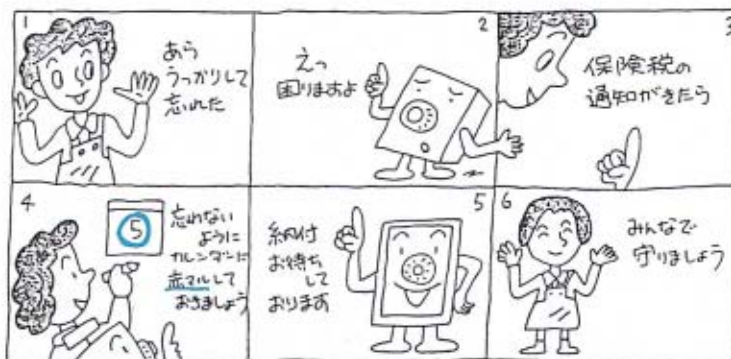 1
あら
うっかりして
忘れた
2
えっ
困りますよ
3
保険税の
通知がきたら
4
5
忘れない
ように
カレンダーに
赤マルして
おきましょう
5
納付
お待ち
して
おります
6
みんなで
守りましょう